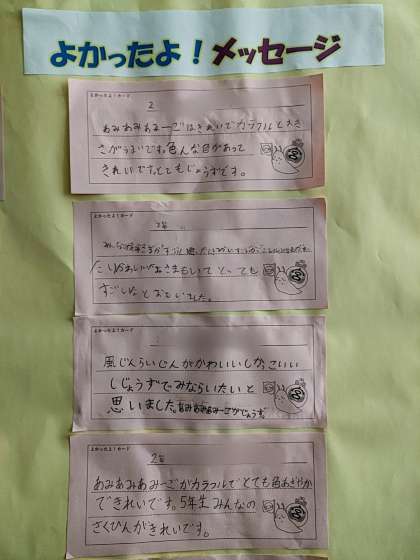 よかったよ！メッセージ
よかったよ！カード
2
あみあみあみーごはきれいでカラフルと大き
さがうまいです。色んな目があって
きれいです。とてもじょうずです。
よかったよ！カード
2年
とっても
すごいなとおもいました。
よかったよ！カード
風じんらいじんがかわいいしかっこいい
しじょうずでみならいたいと
思いました。あみあみあみーごがじょうず。
よかったよ！カード
2年
あみあみあみーごがカラフルでとても色あざやか
できれいです。5年生みんなの
さくひんがきれいです。